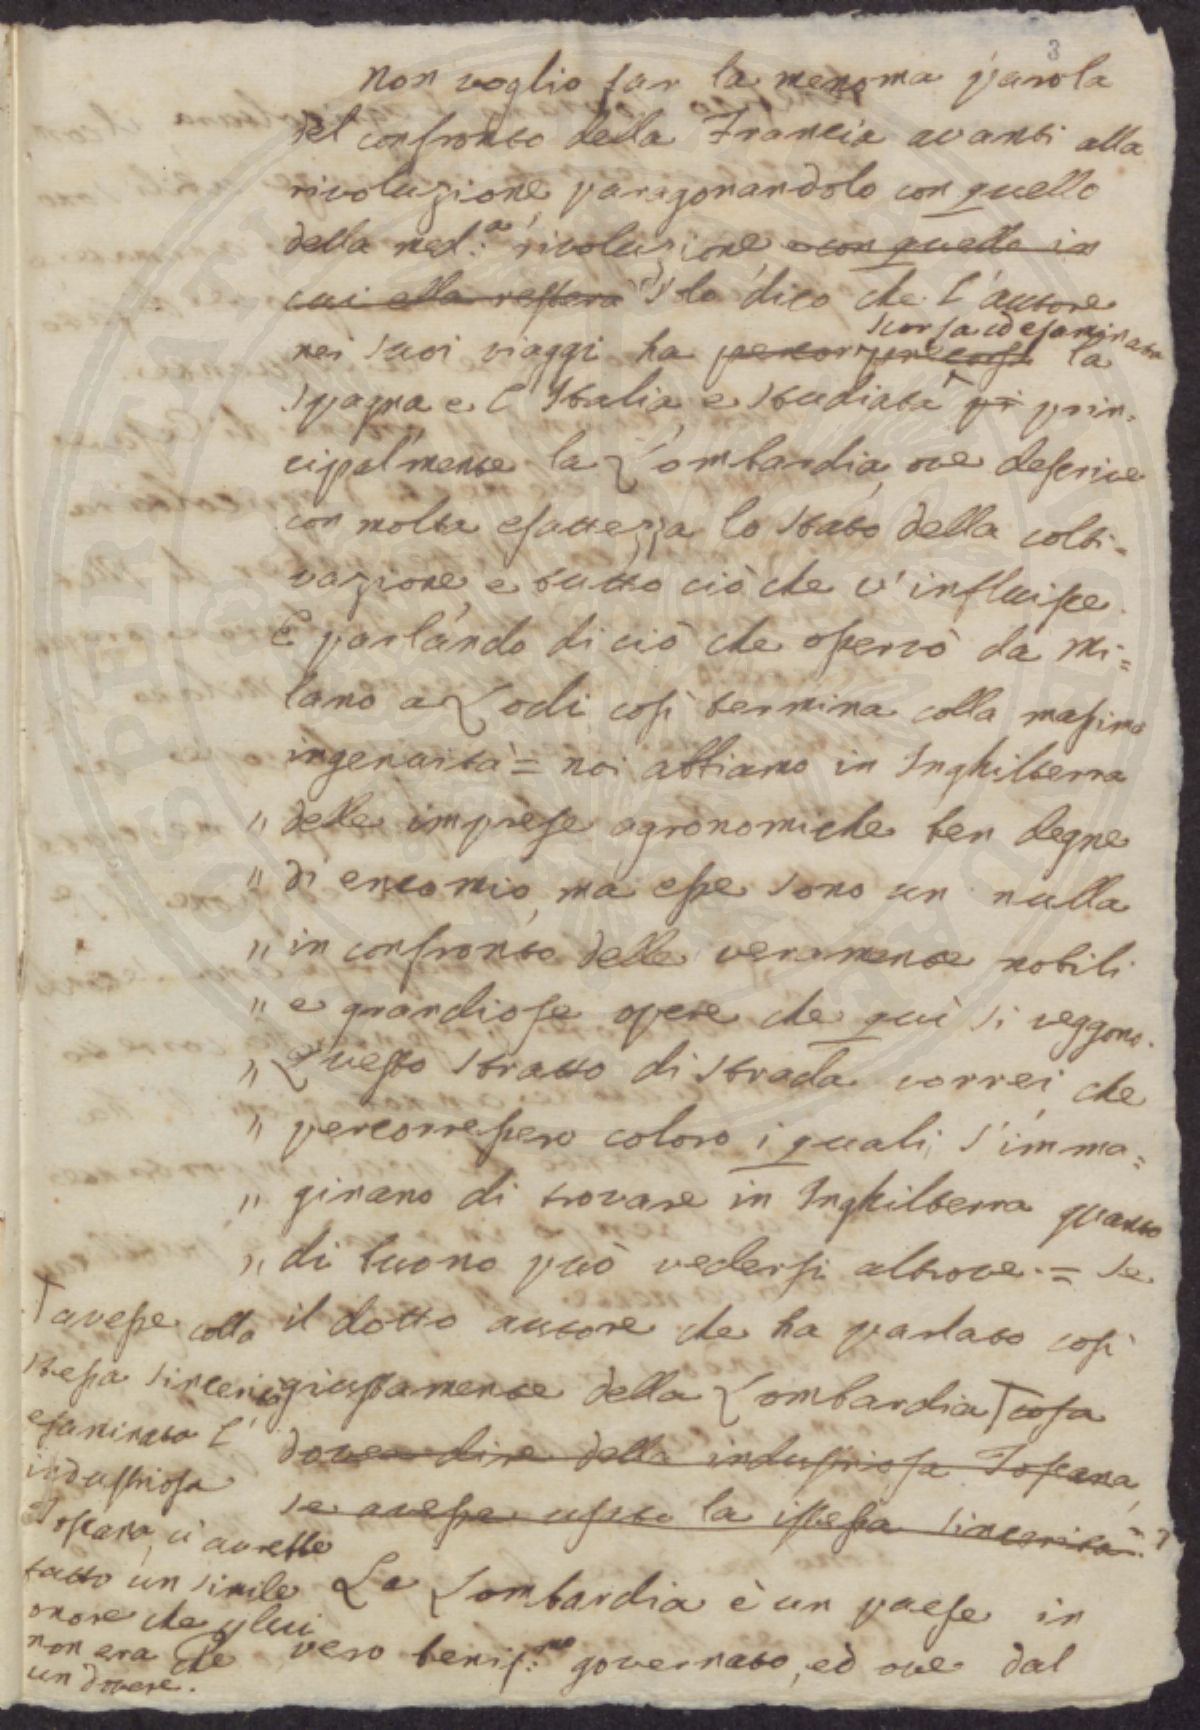 3
Non voglio far la menoma parola
del confronto della Francia avanti alla
rivoluzione paragonandolo con quello
della med:a rivoluzione e con quello in
cui ella resterà Solo dico che l'autore
nei suoi viaggi ha precorsa scorsa ed esaminata la
Spagna e l'Italia, e studiata pi prin=
cipalmente la Lombardia, ove descrive
con molta esattezza lo stato della colti=
vazione, e tutto ciò che v'influisce.
E parlando di ciò che osservò da Mi=
lano a Lodi così termina colla massima
ingenuità = noi abbiamo in Inghilterra
" delle imprese agronomiche ben degne
" di encomio, ma esse sono un nulla
" in confronto delle veramente nobili
" e grandiose opere che quì si veggono.
" Questo stratto di strada vorrei, che
" percorressero coloro i quali s'imma=
" ginano di trovare in Inghilterra quanto
" di buono può vedersi altrove. = Se
il dotto autore che ha parlato così
giustamente della Lombardia cosa
dovea dire della industriosa Toscana,
se avesse usato la istessa sincerità?
avesse colla
stessa sincerità
esaminato l'
industriosa
Toscana, ci avrebbe
fatto un simile
onore che p lui
non era che
un dovere.
La Lombardia è un paese in
vero beniss:mo governato, ed ove dal